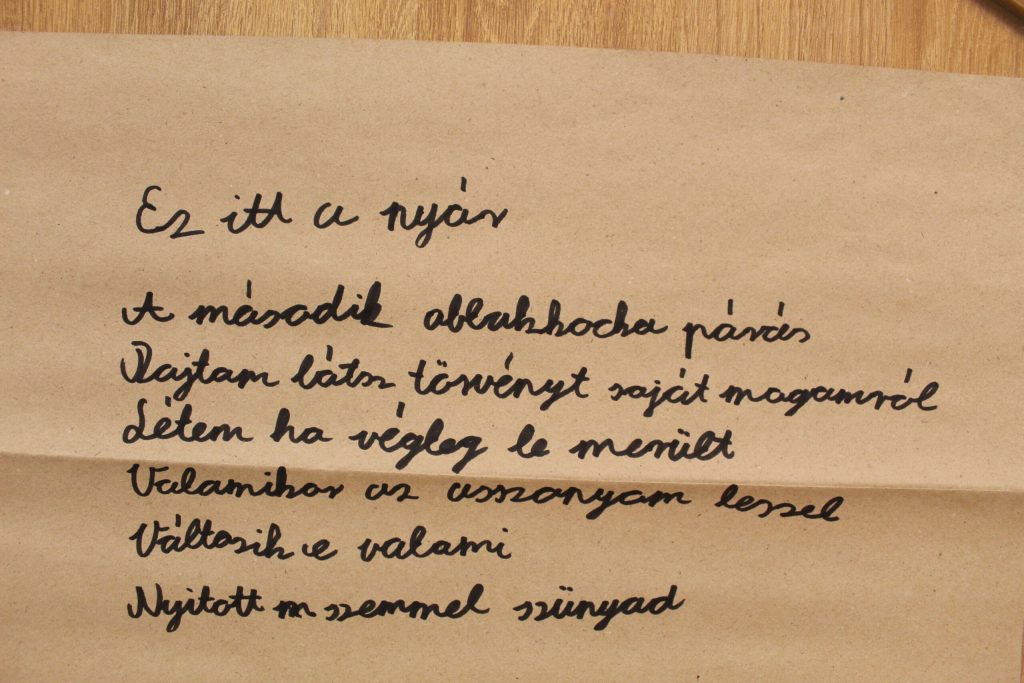 Ez itt a nyár
A második ablakhocha párás
Rajtam látsz törvényt saját magamról
Létem ha végleg le merült
Valamikor az asszonyam lessel
Váltosik e valami
Nyitott m szemmel szünyad